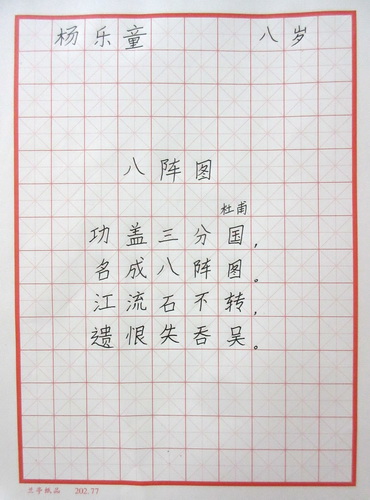 杨乐童 八岁
八阵图
杜甫
功盖三分国，
名成八阵图。
江流石不转，
遗恨失吞吴。
兰亭纸品 202.77